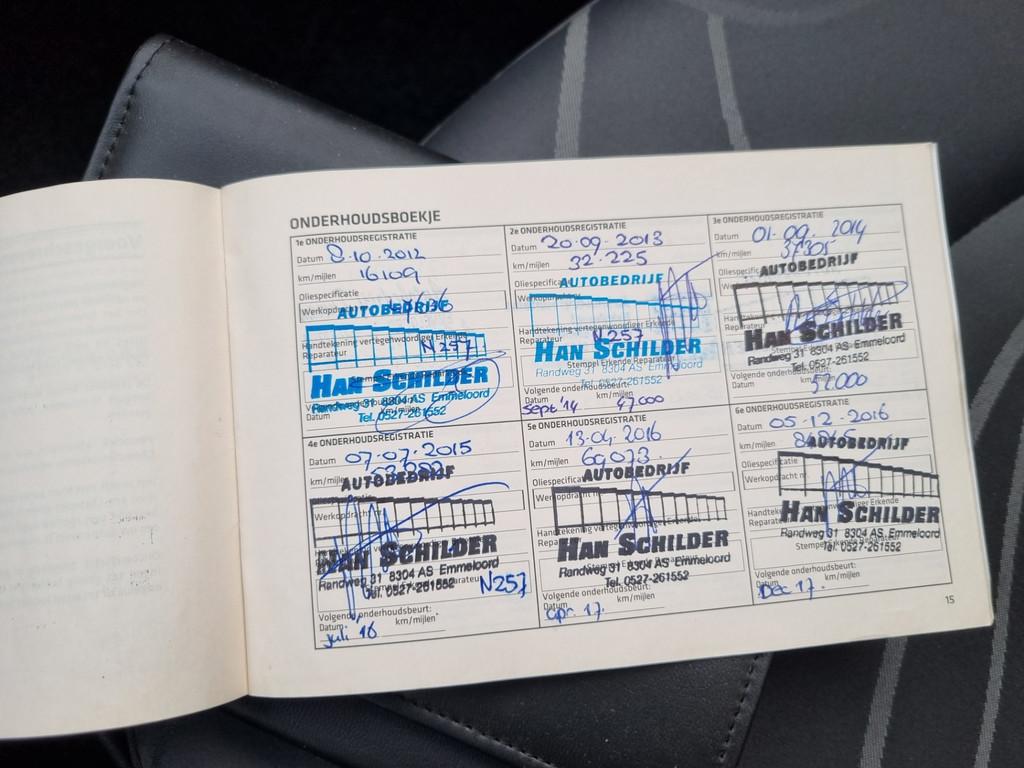 ONDERHOUDSBOEKJE
1e ONDERHOUDSREGISTRATIE
Datum 8.10.2012
km/mijlen 16109
Oliespecificatie
Werkopdracht
AUTOBEDRIJF
Handtekening vertegenwoordiger Erkende
Reparateur N257
HAN SCHILDER
Randweg 31 8304 AS Emmeloord
Datum km/mijlen
Tel. 0527-261552
2e ONDERHOUDSREGISTRATIE
Datum 20.09.2013
km/mijlen 32.225
Oliespecificatie
AUTOBEDRIJF
Werkopdracht
Handtekening vertegenwoordiger Erkende
Reparateur N257
HAN SCHILDER
Stempel Erkende Reparateur
Randweg 31 8304 AS Emmeloord
Tel. 0527-261552
Volgende onderhoudsbeurt:
Datum km/mijlen
Sept '14 47.000
3e ONDERHOUDSREGISTRATIE
Datum 01.09.2014
km/mijlen 37305
Oliespecificatie
AUTOBEDRIJF
Reparateur
HAN SCHILDER
Randweg 31 8304 AS Emmeloord
Tel. 0527-261552
Volgende onderhoudsbeurt:
Datum 52.000
4e ONDERHOUDSREGISTRATIE
Datum 07.07.2015
km/mijlen
AUTOBEDRIJF
Werkopdracht
HAN SCHILDER
Randweg 31 8304 AS Emmeloord
Tel. 0527-261552
N257
Volgende onderhoudsbeurt:
Datum km/mijlen
juli 16
5e ONDERHOUDSREGISTRATIE
Datum 13.04.2016
km/mijlen 69073
Oliespecificatie
AUTOBEDRIJF
Werkopdracht nr.
Handtekening vertegenwoordiger Erkende
HAN SCHILDER
Randweg 31 8304 AS Emmeloord
Tel. 0527-261552
Volgende onderhoudsbeurt:
Datum km/mijlen
apr. 17.
6e ONDERHOUDSREGISTRATIE
Datum 05.12.2016
km/mijlen
AUTOBEDRIJF
Oliespecificatie
Werkopdracht nr.
Reparateur
HAN SCHILDER
Randweg 31 8304 AS Emmeloord
Tel. 0527-261552
Volgende onderhoudsbeurt:
Datum km/mijlen
Dec 17.
15